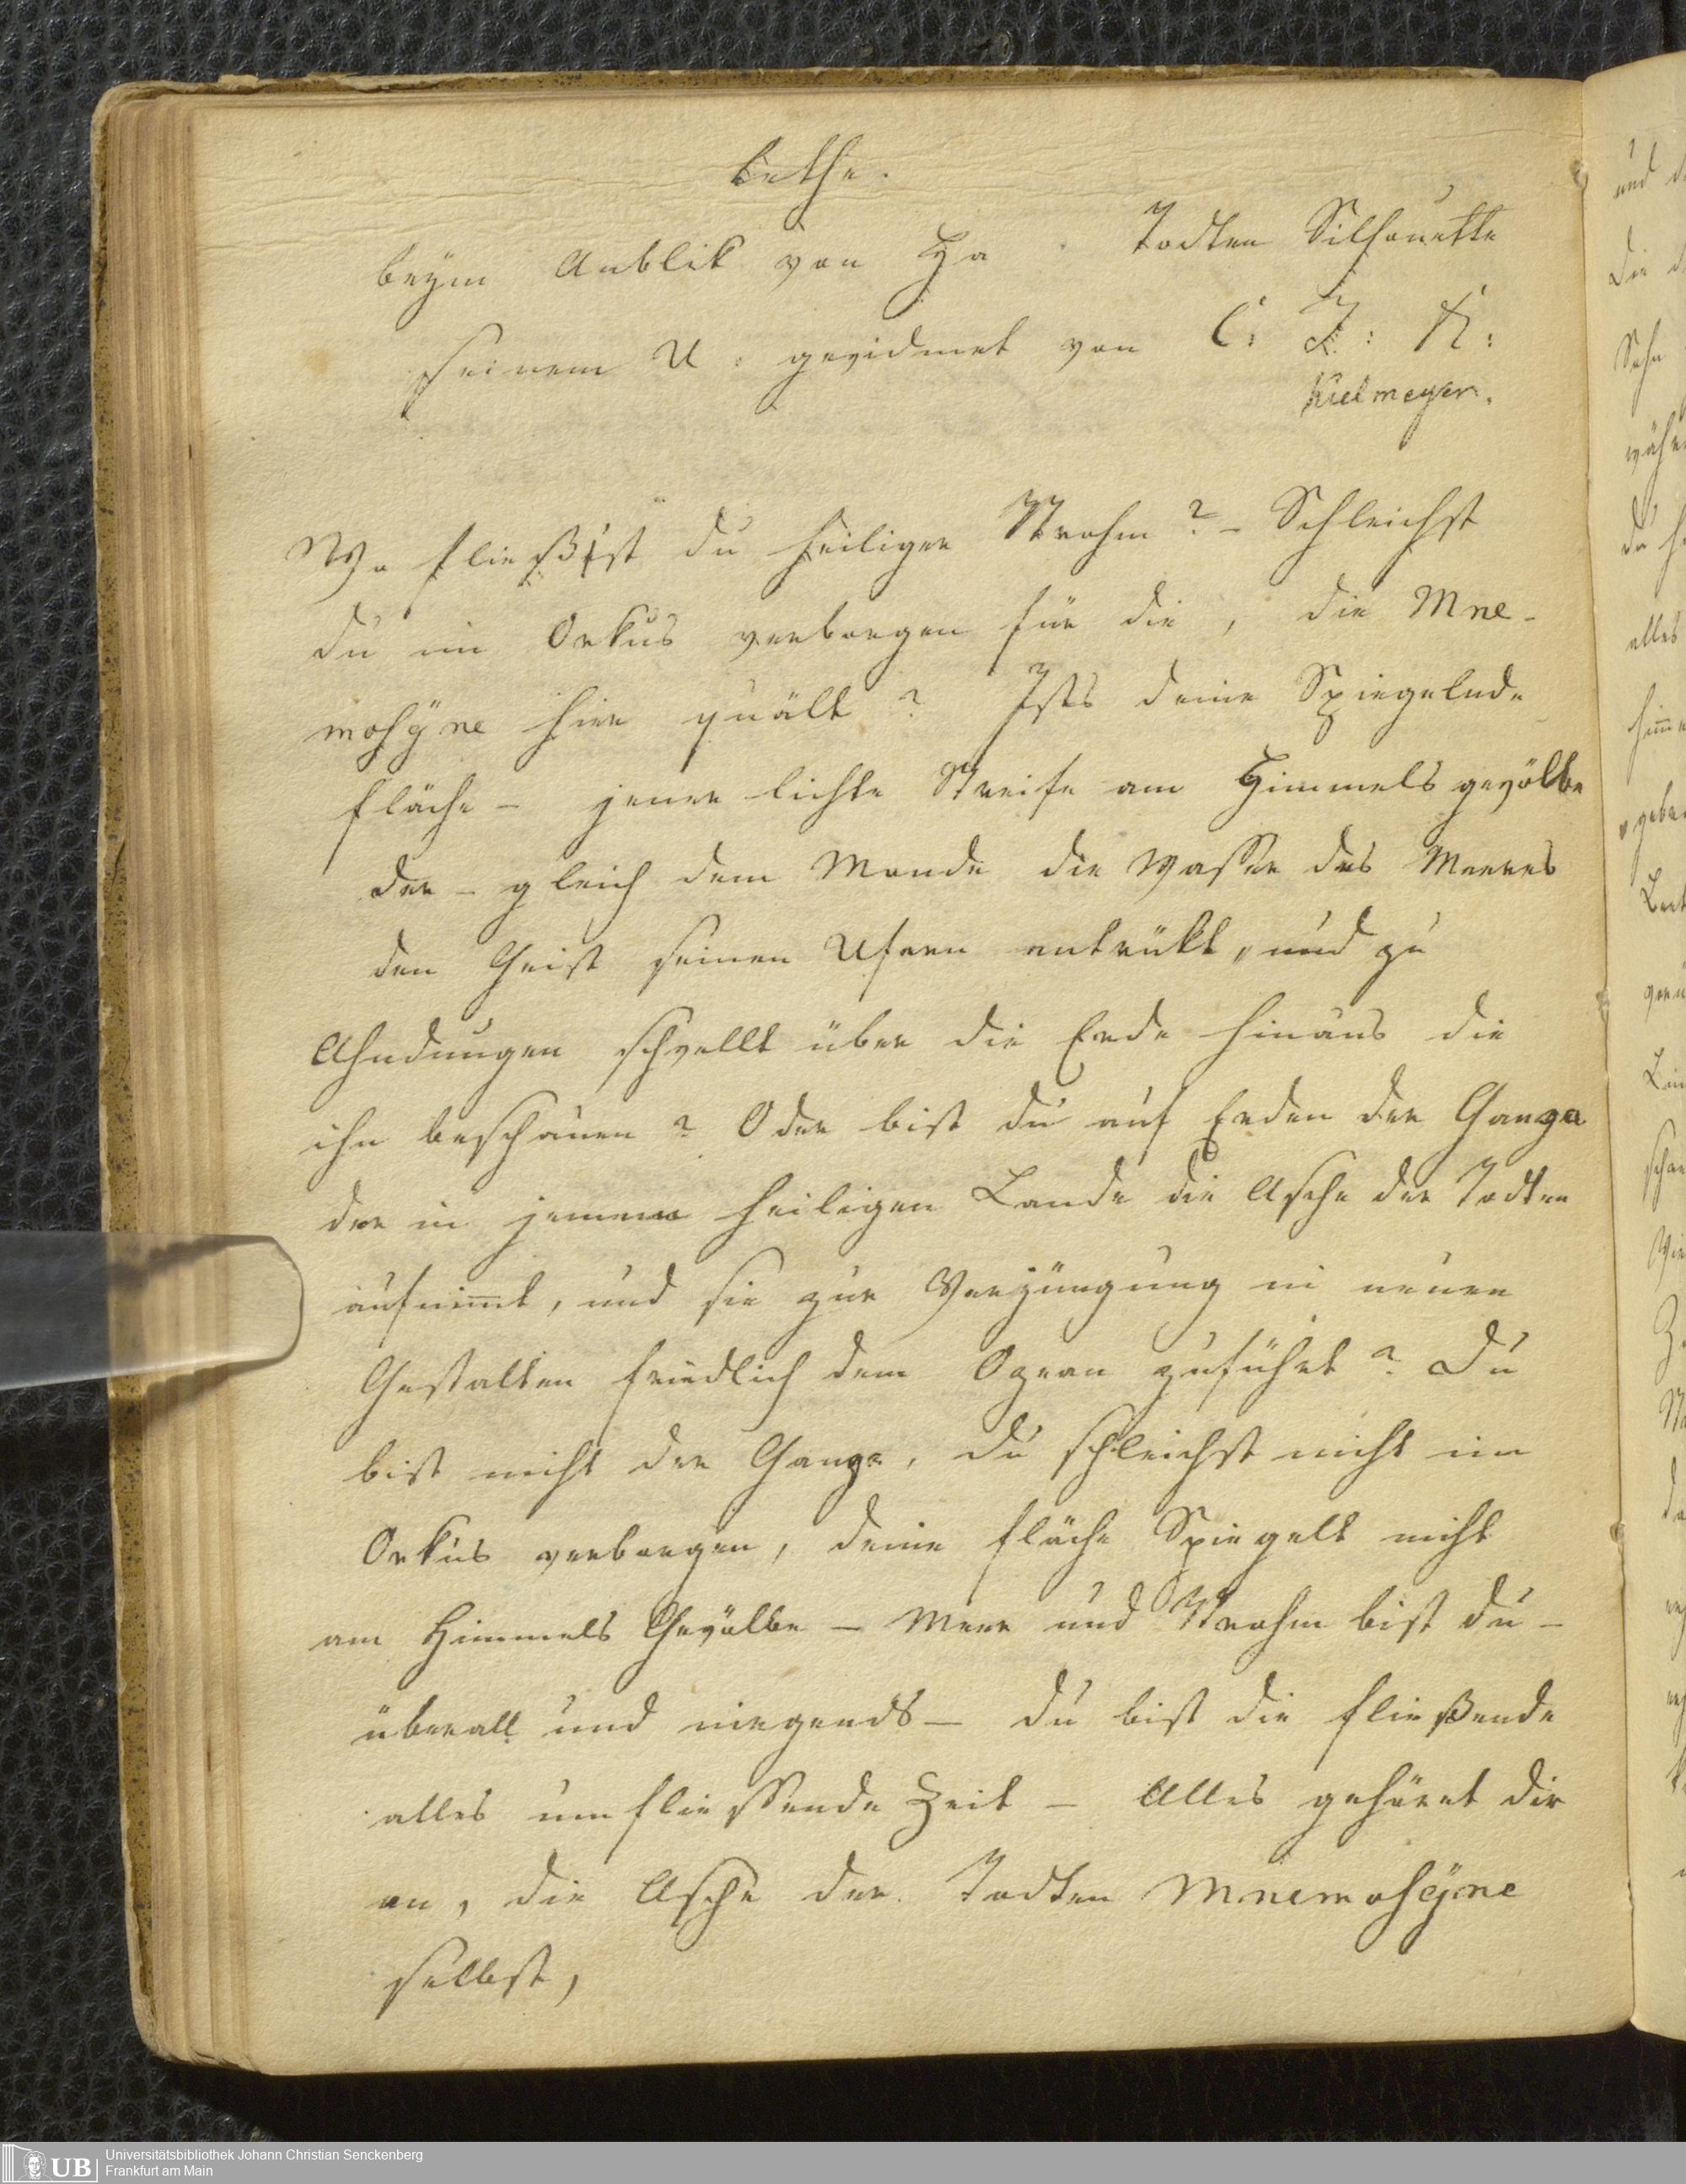 Lethe.
beym Anblik von Ha Todten Silhouette
seinem U: gewidmet von C: F: K:
Kielmeyer.
Wo fließest du heiliger Strohm? - Schleichst
du im Orkus verborgen für die, die Mne-
mosÿne hier quält? Ists deine Spiegelnde
Fläche - jener lichte Streife am Himmelsgewölbe
der - gleich dem Monde die Wasser des Meeres
den Geist seinen Ufern entrükt, und zu
Ahndungen schwellt über die Erde hinaus die
ihn beschauen? Oder bist du auf Erden der Ganga
der in jenem heiligen Lande die Asche der Todten
aufnim̅t, und sie zur Verjüngung in neuen
Gestalten friedlich dem Ozean zuführt? Du
bist nicht der Ganga, du schleichst nicht im
Orkus verborgen, deine Fläche Spiegelt nicht
am Himmels Gewölbe - Meer und Strohm bist du -
überall und nirgends - du bist die fließende
alles umfliessende Zeit - Alles gehöret dir
an, die Asche der Todten MnemosÿNe
selbst,
Universitätsbibliothek Johann Christian Senckenberg
Frankfurt am Main
UB